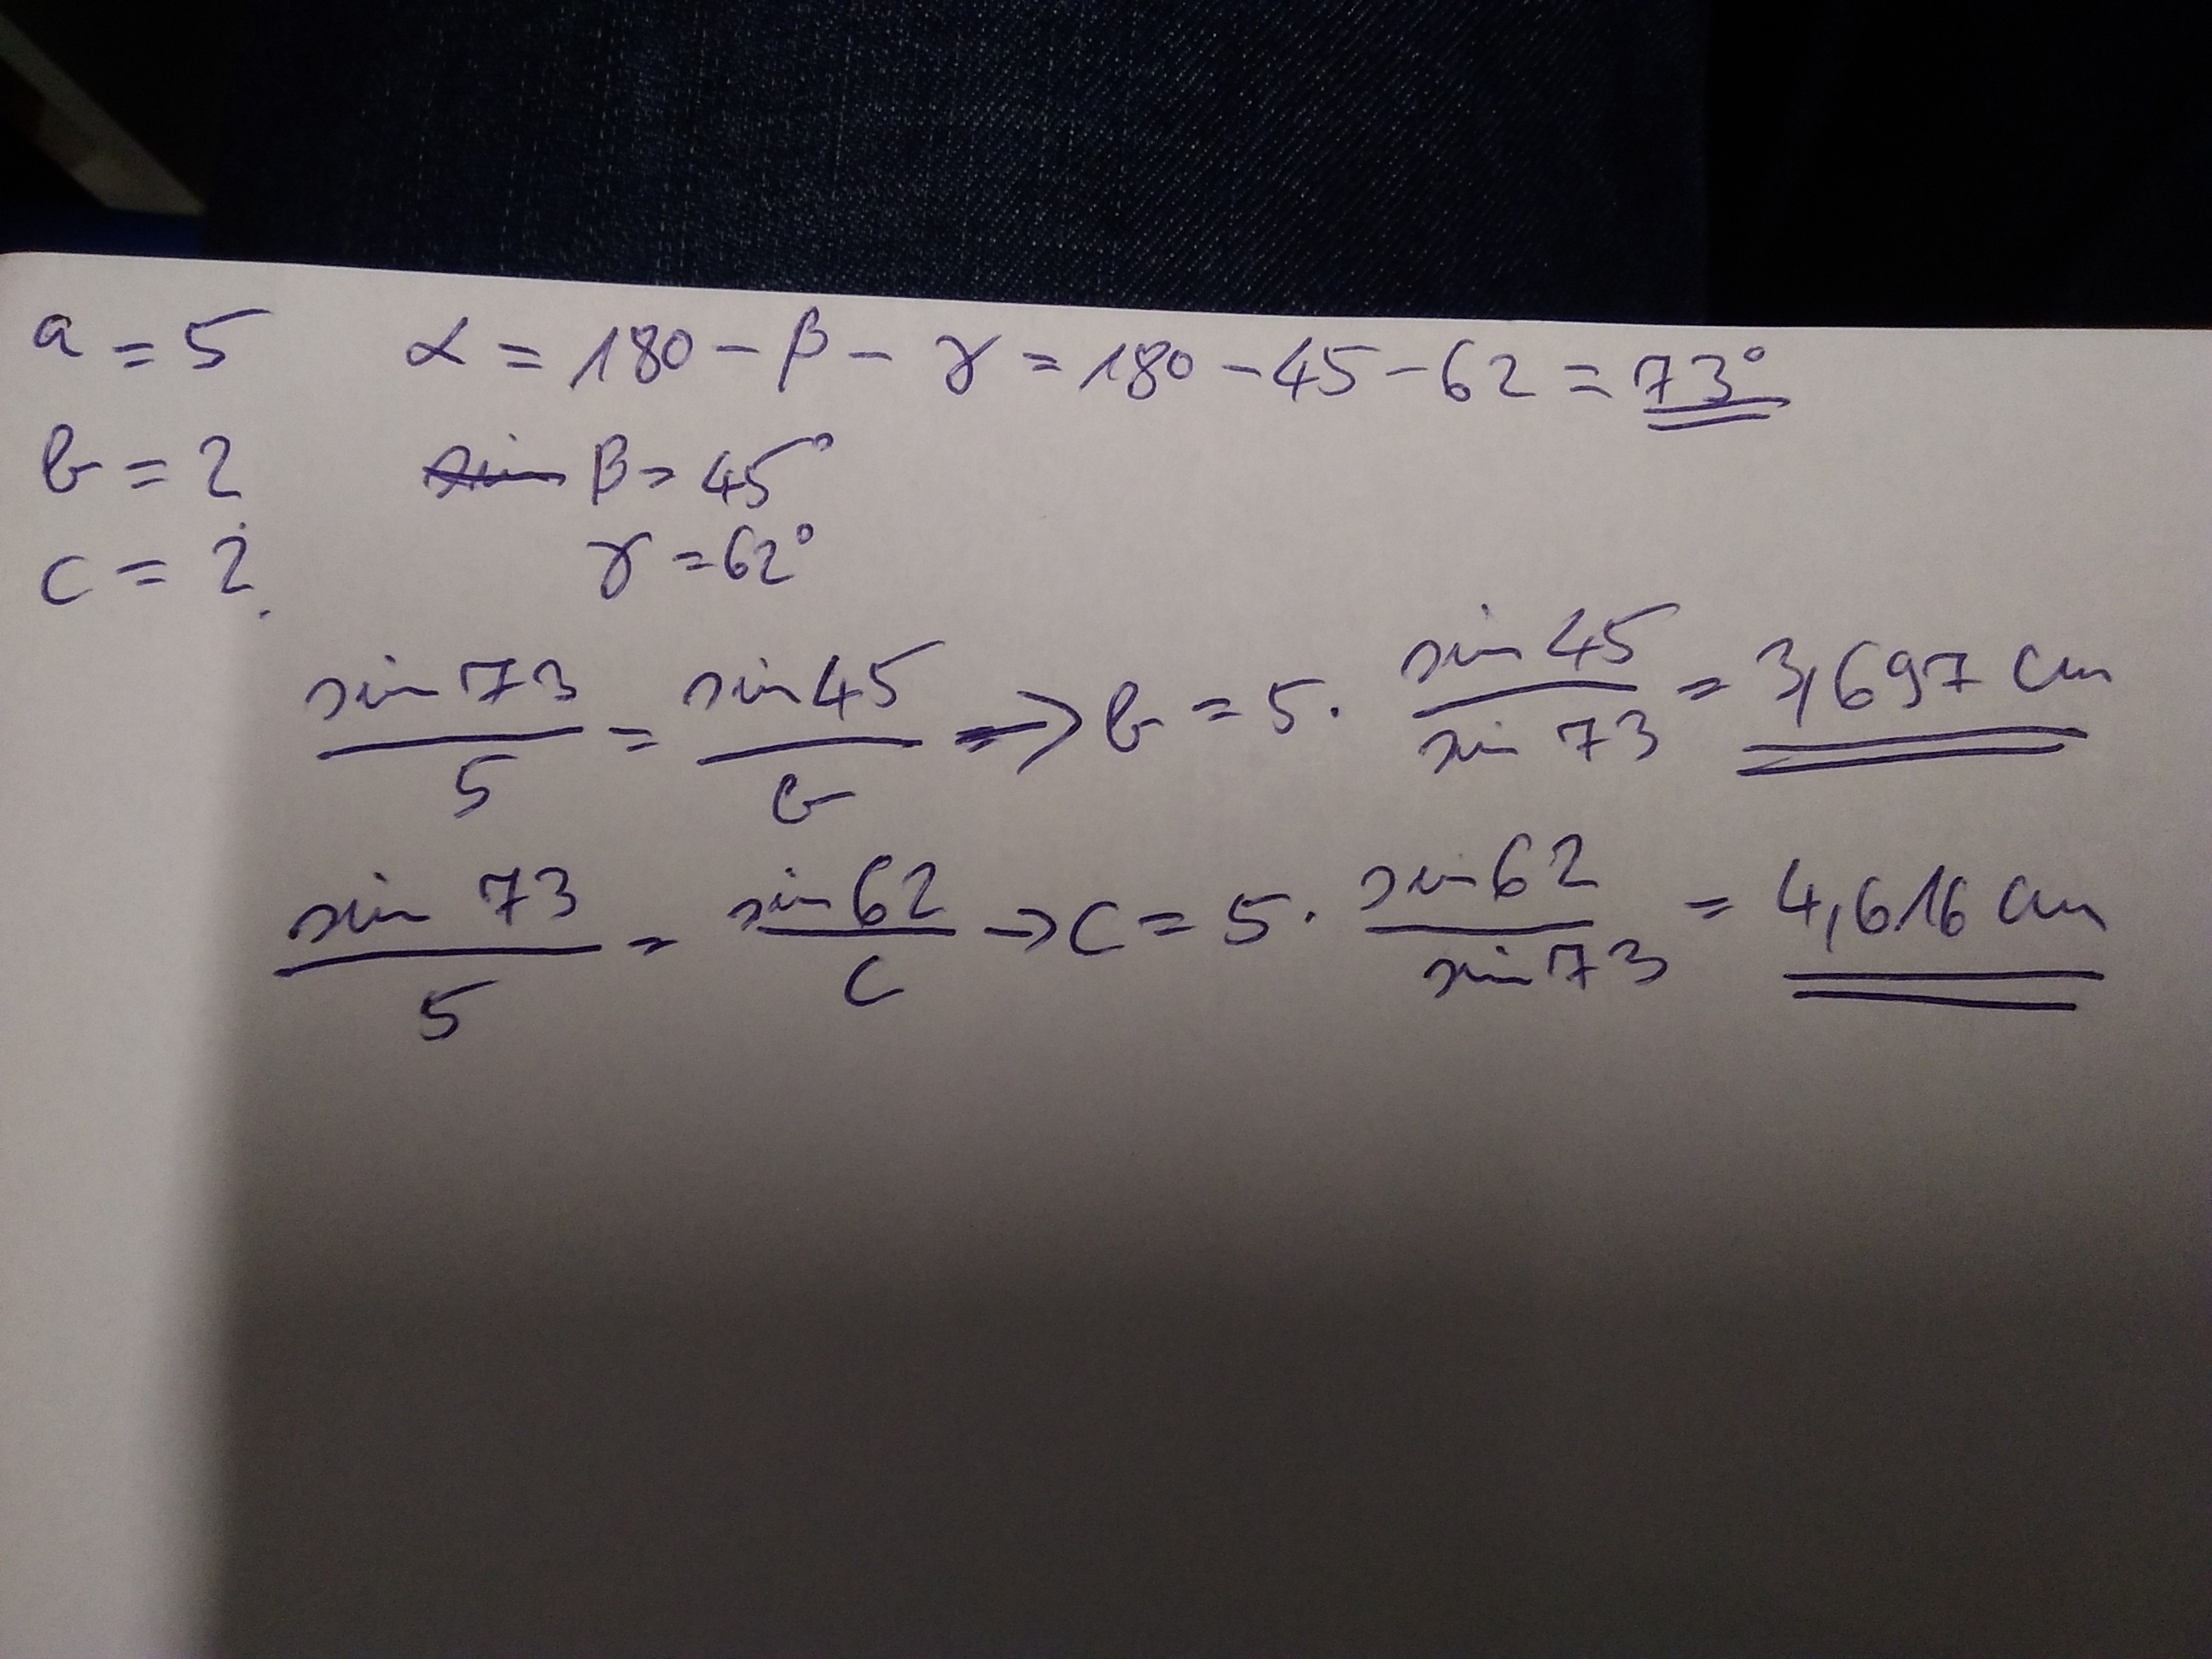 a = 5 α = 180 - β - γ = 180 - 45 - 62 = 73°
b = ? sin β = 45°
c = ? γ = 62°
sin 73 / 5 = sin 45 / b => b = 5 · sin 45 / sin 73 = 3,697 cm
sin 73 / 5 = sin 62 / c → c = 5 · sin 62 / sin 73 = 4,616 cm